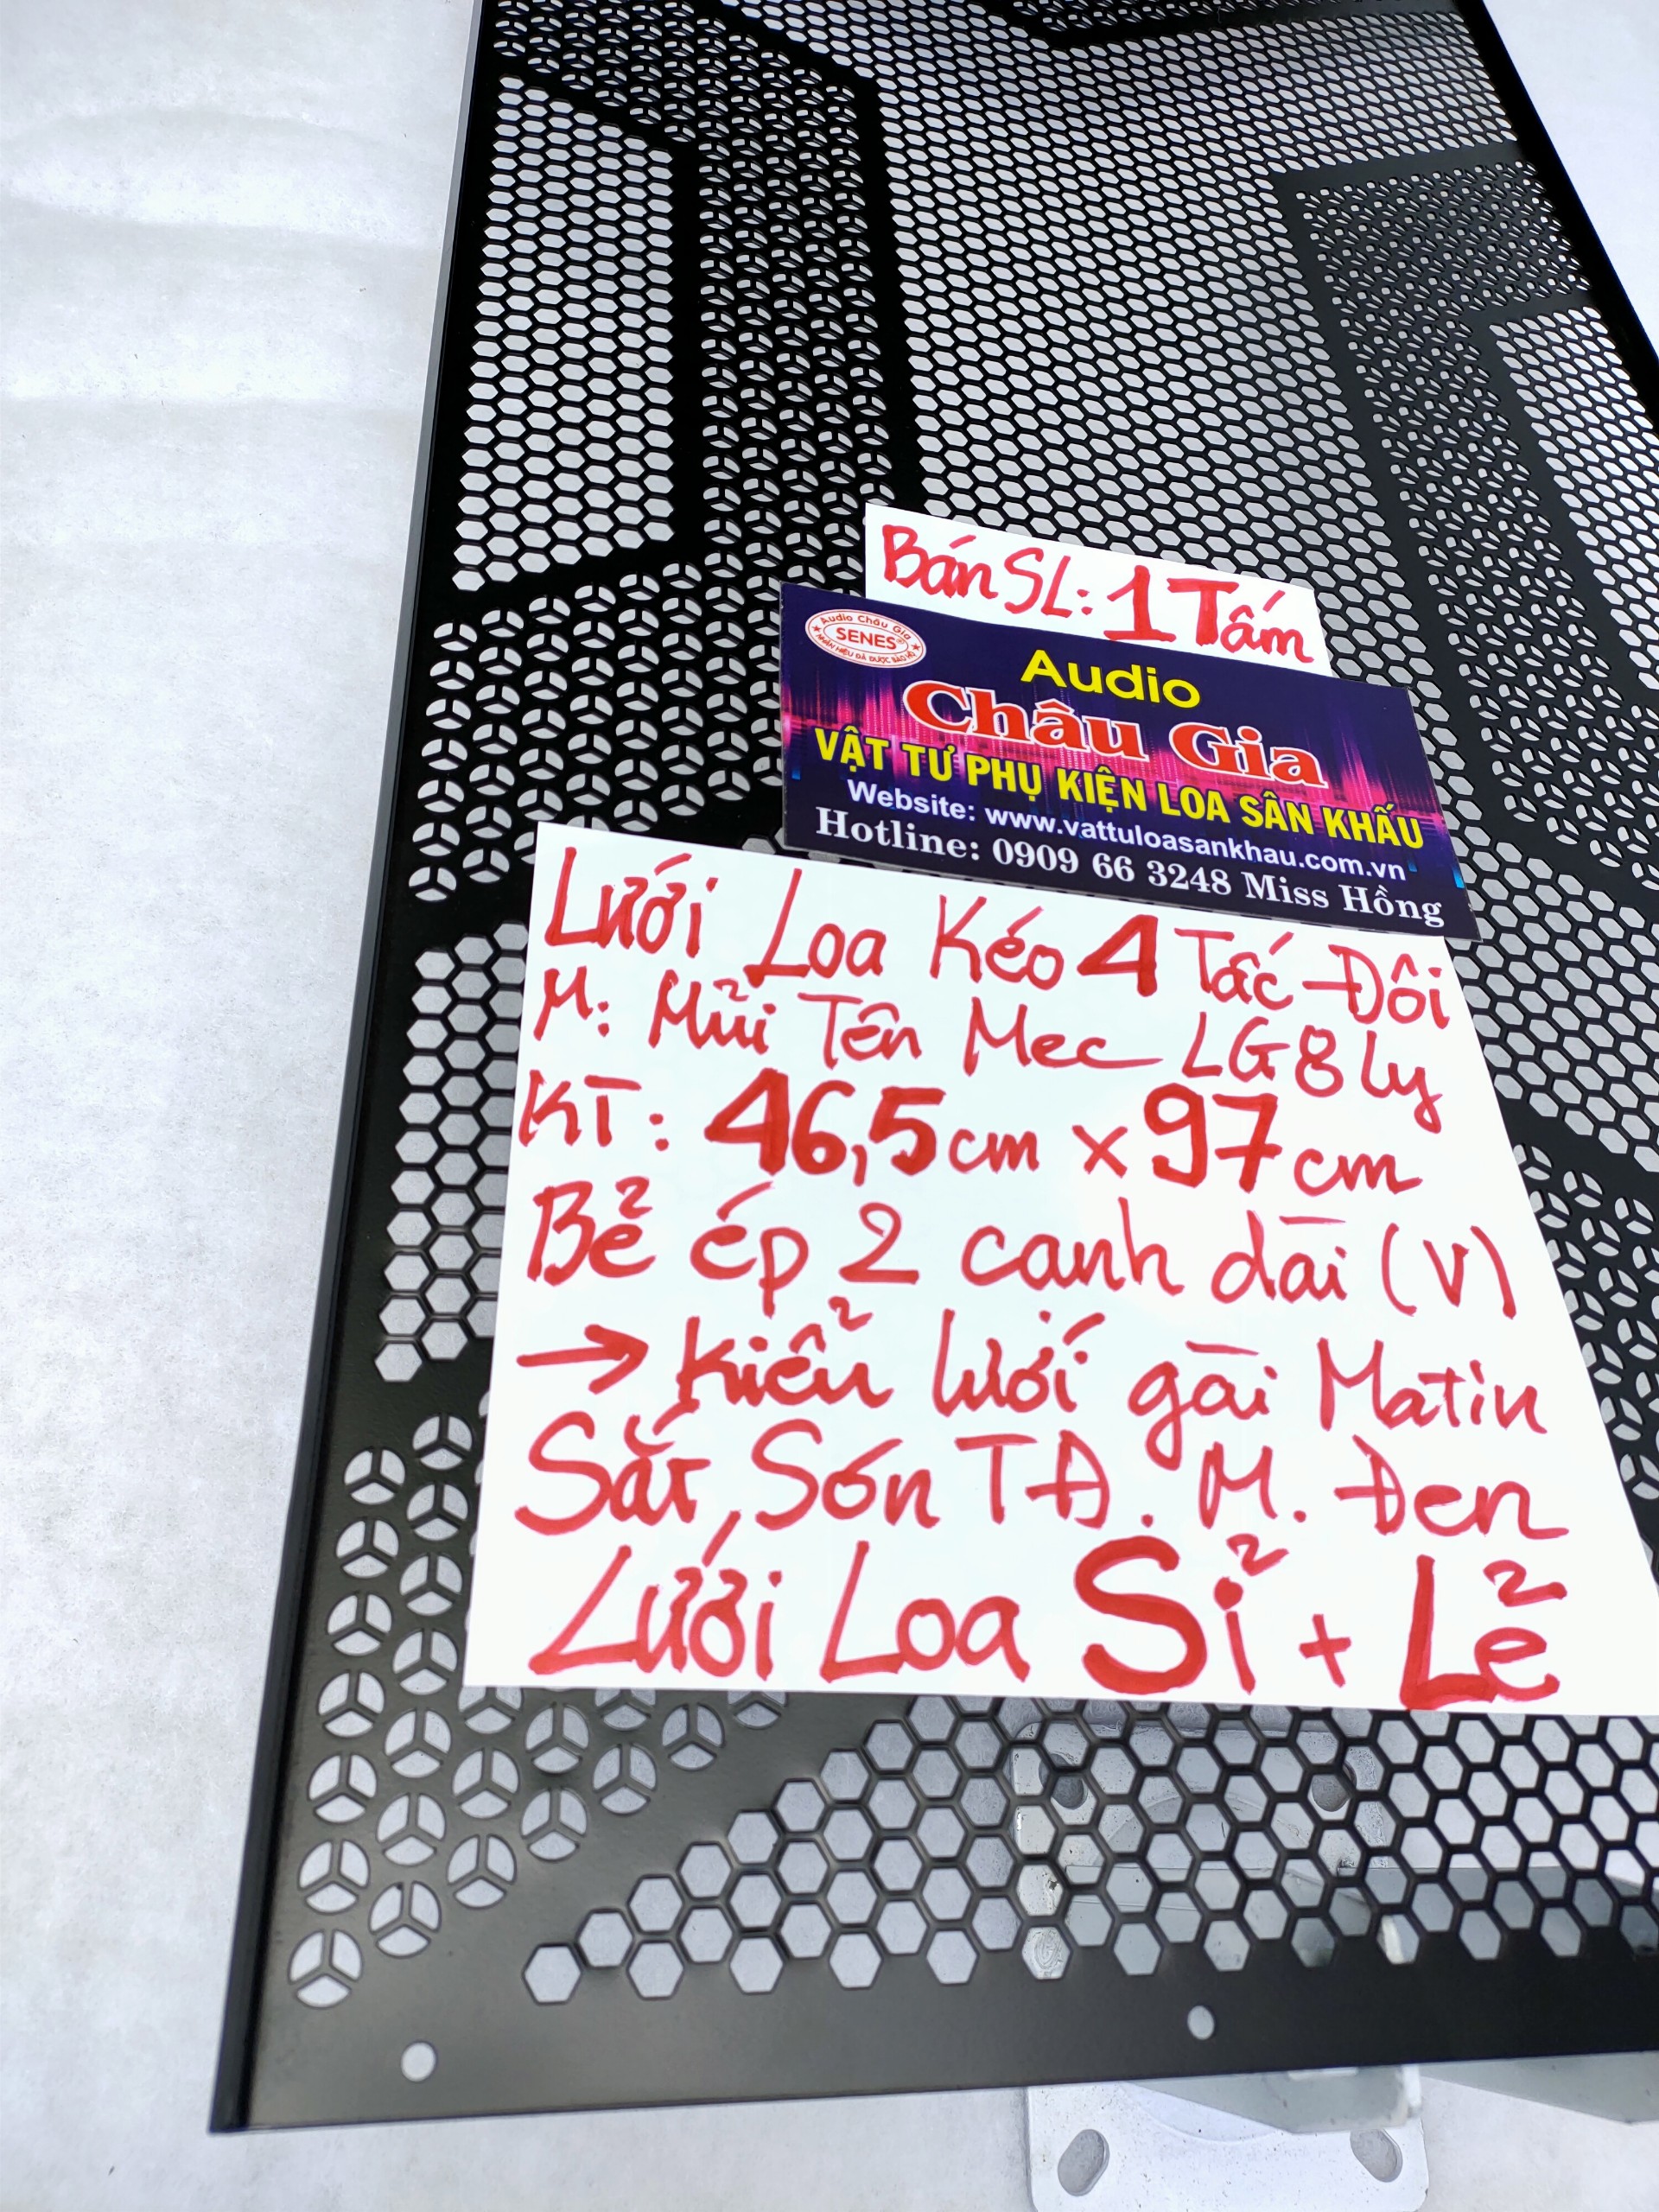 Bán SL: 1 Tấm
Audio Châu Gia
SENES®
NHÃN HIỆU ĐÃ ĐƯỢC BẢO HỘ
Audio
Châu Gia
VẬT TƯ PHỤ KIỆN LOA SÂN KHẤU
Website: www.vattuloasankhau.com.vn
Hotline: 0909 66 3248 Miss Hồng
Lưới Loa Kéo 4 Tấc Đôi
M: Mũi Tên Mec LG 8 ly
KT: 46,5cm x 97cm
Bẻ ép 2 cạnh dài (V)
→ Kiểu lưới gài Matin
Sắt Sơn TĐ. M. Đen
Lưới Loa Sỉ + Lẻ